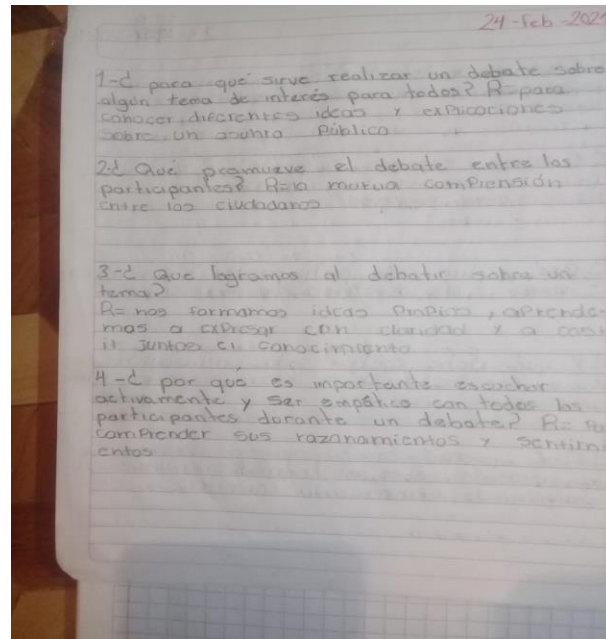 24-Feb-2021
1-¿ para qué sirve realizar un debate sobre
algún tema de interés para todos? R=para
conocer diferentes ideas y explicaciones
sobre un asunto público
2-¿ Qué promueve el debate entre los
participantes? R=la mutua comprensión
entre los ciudadanos
3-¿ Que logramos al debatir sobre un
tema?
R= nos formamos ideas propias, aprende-
mos a expresar con claridad y a
juntos el conocimiento
4-¿ por qué es importante escuchar
activamente y ser empático con todos los
participantes durante un debate? R=
comprender sus razonamientos y sentimi
entos